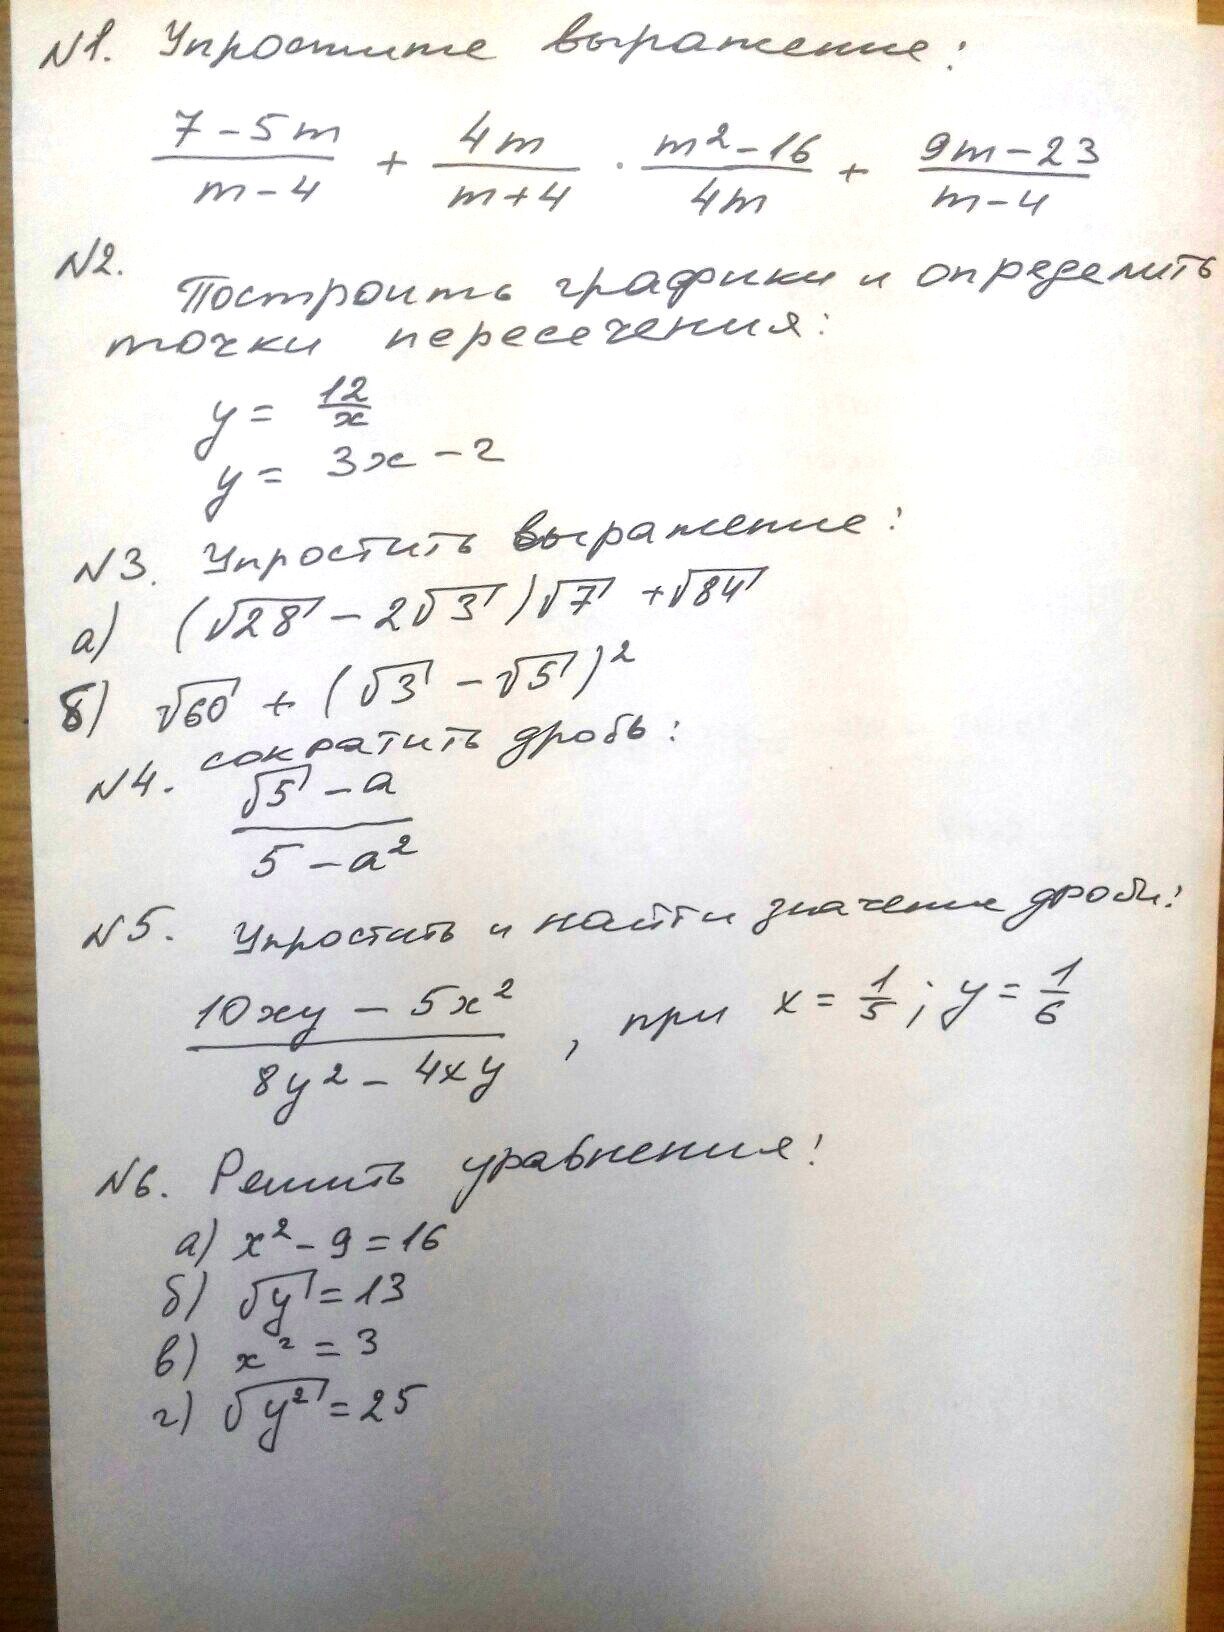 №1. Упростите выражение:
(7-5m)/(m-4) + (4m)/(m+4) · (m²-16)/(4m) + (9m-23)/(m-4)
№2.
Построить графики и определить
точки пересечения:
y = 12/x
y = 3x - 2
№3. Упростить выражение:
а) (√28 - 2√3)√7 + √84
б) √60 + (√3 - √5)²
№4. сократить дробь:
(√5 - a)/(5 - a²)
№5. Упростить и найти значение дроби:
(10xy - 5x²)/(8y² - 4xy), при x = 1/5; y = 1/6
№6. Решить уравнения:
а) x² - 9 = 16
б) √y = 13
в) x² = 3
г) √y² = 25